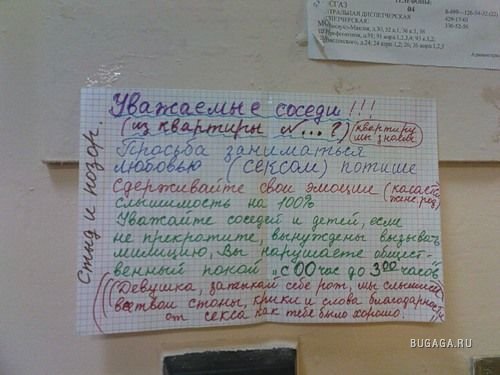 СГАЗ
ТЕЛЕФОНЫ:
04
ТРАЛЬНАЯ ДИСПЕТЧЕРСКАЯ
ПЕТЧЕРСКАЯ:
Уважаемые соседи!!!
(из квартиры №...?) (квартиру мы знаем)
Просьба заниматься
любовью (сексом) потише
Сдерживайте свои эмоцие (касается женс. род)
слышимость на 100%
Уважайте соседей и детей, если
не прекратите, вынуждены вызывать
милицию, Вы нарушаете общест-
венный покой "с 00 час до 3 00 часов"
(((Девушка, затыкай себе рот, мы слышим
все твои стоны, крики и слова благодарности
от секса как тебе было хорошо.
Стыд и позор.
BUGAGA.RU